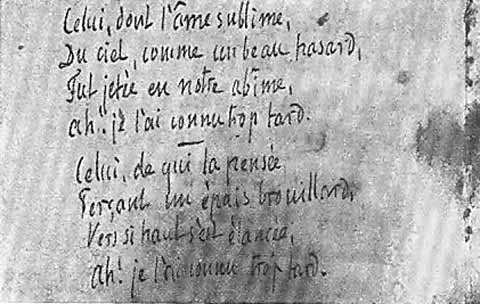 Celui, dont l'âme sublime,
Du ciel, comme un beau hasard,
Fut jetée en notre abîme,
Ah! je l'ai connu trop tard.
Celui, de qui la pensée
Perçant un épais brouillard,
Vers si haut s'est élancée,
Ah! je l'ai connu trop tard.